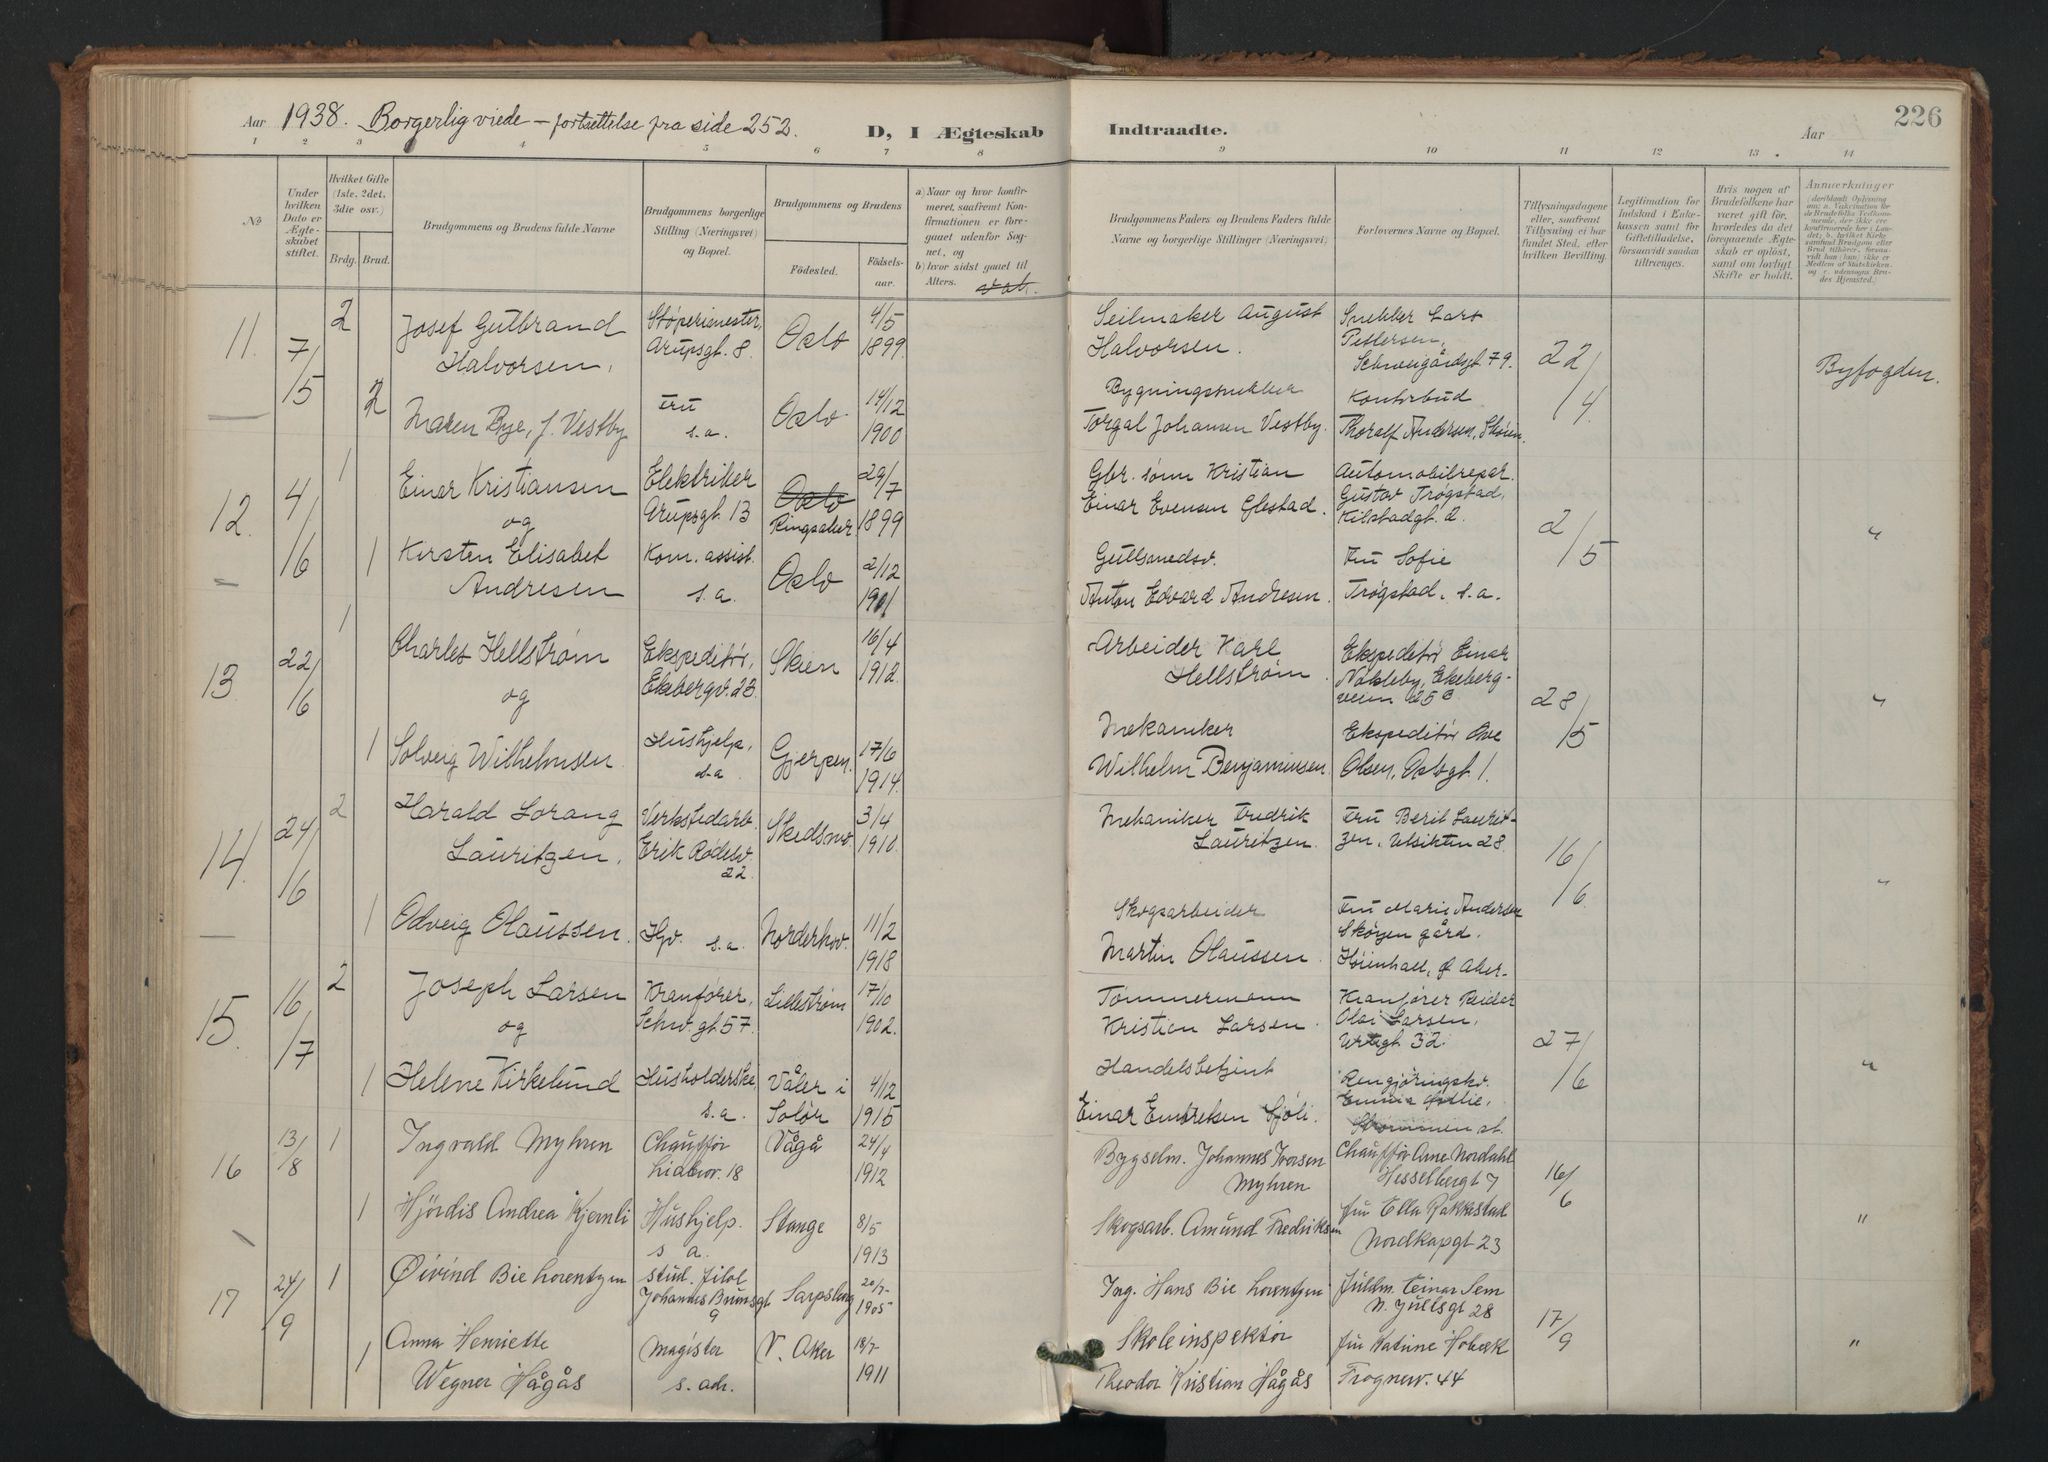 Aar 1938. Borgerlig viede – fortsettelse fra side 252. D, I Ægteskab Indtraadte. Aar 226
1 2 3 4 5 6 7 8 9 10 11 12 13 14
No
Under hvilken Dato er Ægteskabet stiftet.
Hvilket Gifte (1ste, 2det, 3die osv.)
Brdg. Brud.
Brudgommens og Brudens fulde Navne
Brudgommens borgerlige Stilling (Næringsvei) og Bopæl.
Brudgommens og Brudens
Fødested. Fødselsaar.
a) Naar og hvor konfirmeret, saafremt Konfirmationen er foregaaet udenfor Sognet, og
b) hvor sidst gaaet til Alters.
Brudgommens Faders og Brudens Faders fulde Navne og borgerlige Stillinger (Næringsvei)
Forlovernes Navne og Bopæl.
Tillysningsdagene eller, saafremt Tillysning ei har fundet Sted, efter hvilken Bevilling.
Legitimation for Indskud i Enkekassen samt for Giftetilladelse, forsaavidt saadan tiltrænges.
Hvis nogen af Brudefolkene har været gift før, hvorledes da det foregaaende Ægteskab er opløst, samt om lovligt Skifte er holdt.
Anmærkninger
11. 7/5 2 Josef Gutbrand Støperimester, Oslo 4/5 Seilmaker August Snekker Lars 22/4 Byfogden.
Halvorsen, Arupsgt. 8. 1899 Halvorsen. Pettersen, Schweigårdsgt 79.
2 Maren Bye, f. Vestby Fru s.a. Oslo 14/12 1900 Bygningssnekker Kontorbud
Torgal Johansen Vestby. Thoralf Andersen, Skøien.
12. 4/6 1 Einar Kristiansen Elektriker Oslo 29/7 Gbr. sønn Kristian Automobilrepar. 2/5 "
og Arupsgt. 13 Ringsaker 1899 Einar Evensen Glestad. Gustav Trøgstad, Kilstadgt. 2.
1 Kirsten Elisabet Kom. assist. Oslo 2/12 Gullsmedsv. Fru Sofie
Andresen s.a. 1901 Anton Edvard Andresen. Trøgstad. s.a.
13 22/6 1 Charles Hellstrøm Ekspeditør, Skien 16/4 Arbeider Karl Ekspeditør Einar 28/5 "
og Ekebergv. 23. 1912. Hellstrøm. Nakleby, Ekebergveien 25 B
1 Solveig Wilhelmsen Hushjelp, s.a. Gjerpen. 17/6 1914. Mekaniker Ekspeditør Ove
Wilhelm Benjaminsen Olsen, Oslogt 1.
14. 24/6 2 Harald Lorang Verkstedarb. Skedsmo. 3/4 Mekaniker Fredrik Fru Berit Laurit- 16/6 "
Lauritzen, Erik Rodesv. 22 1910. Lauritzen. zen, Utsikten 28.
1 Odveig Olaussen. Hpv. s.a. Norderhov. 11/2 1918 Skogsarbeider Fru Marie Andersen
Martin Olaussen. Skøyen gård. Høienhall, Ø. Aker.
15. 16/7 2 Joseph Larsen Kranfører, Lillestrøm 17/10 Tømmermann Kranfører Reidar 27/6 "
og Schw. gt 57. 1902. Kristian Larsen. Olai Larsen, Urtegt 32.
1 Helene Kirkelund Husholderske Våler i 4/12 Handelsbetjent Rengjøringskv.
s.a. Solør 1915 Einar Emb Sjøli. Emmie
Strømmen st.
16 13/8 1 Ingvald Myhren Chauffør Vågå 24/4 Bygselm. Johannes Iversen Chauffør Arne Nordahl 16/6 "
18 1912 Myhren Hesselbergt 7
1 Hjördis Andrea Kjernli Hushjelp. Stange 8/5 Skogsarb. Amund Fredriksen Fru Ella Rakkestad
s a. 1913 Nordkapgt 23
17 24/9 1 Øivind Bie Lorentzen stud. filol Sarpsborg 20/7 Ing. Hans Bie Lorentzen Fullm. Einar Sem 17/9 "
Johannes Brunsgt 9 1905 N. Juelsgt 28
1 Anna Henriette magister V. Aker 18/7 Skoleinspektør Fru Katrine Holbæk
Wegner Hågås s. adr. 1911 Theodor Kristian Hågås Frognerv. 44